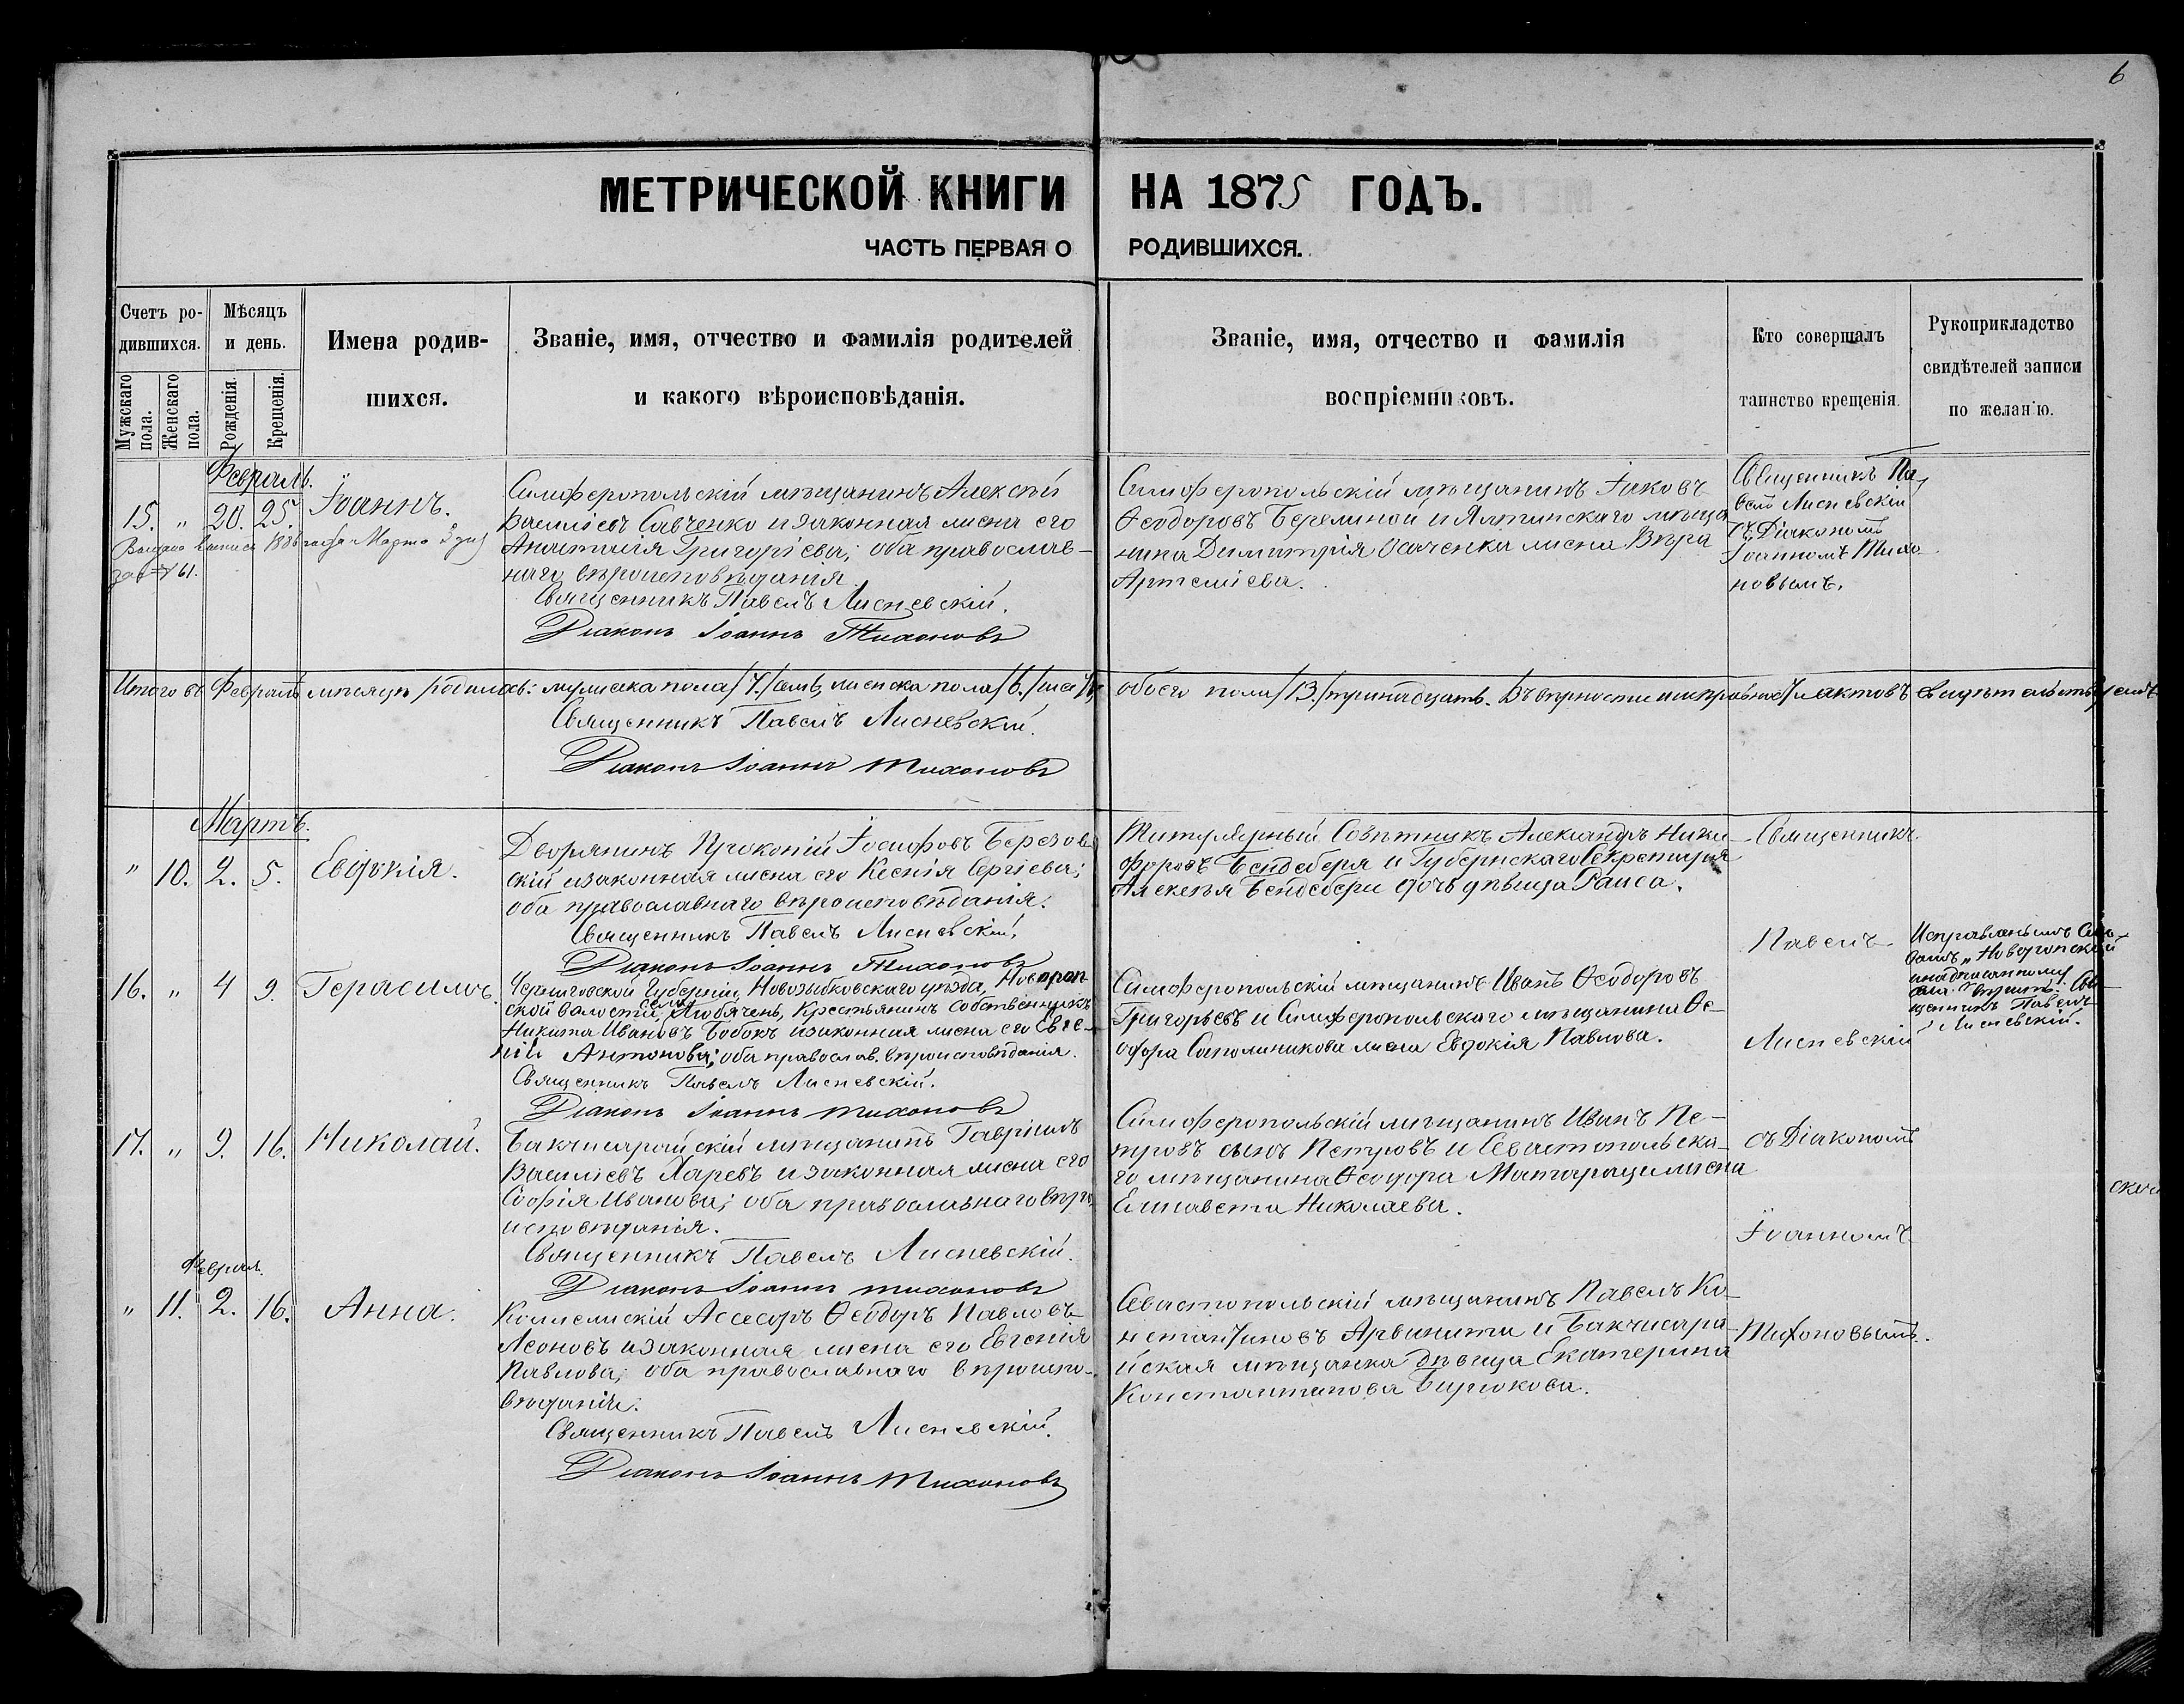 6
МЕТРИЧЕСКОЙ КНИГИ НА 1875 ГОДЪ.
ЧАСТЬ ПЕРВАЯ О РОДИВШИХСЯ.
Счетъ ро-
дившихся.
Мужскаго пола.
Женскаго пола.
Мѣсяцъ
и день.
Рожденія.
Крещенія.
Имена родив-
шихся.
Званіе, имя, отчество и фамилія родителей
и какого вѣроисповѣданія.
Званіе, имя, отчество и фамилія
воспріемниковъ.
Кто совершалъ
таинство крещенія.
Рукоприкладство
свидѣтелей записи
по желанію.
Февраль.
15. " 20. 25. Іоаннъ.
за № 61.
Симферопольскій мѣщанинъ Алексѣй
Василіевъ Савченко и законная жена его
Анастасія Григоріева; оба православ-
наго вѣроисповѣданія.
Священникъ Павелъ Лисневскій.
Діаконъ Іоаннъ Тихоновъ
Симферопольскій мѣщанинъ Іаковъ
Ѳеодоровъ и Ялтинскаго мѣща
нина Димитрія Осаченка жена Вѣра
Артеміева.
Священникъ Па
велъ Лисневскій
съ Діакономъ
Іоанномъ Тихо
новымъ.
Итого въ Февралѣ мѣсяцѣ родилось: мужеска пола /7./ семь, женска пола /6./ шесть, обоего пола /13./ тринадцать. Въ вѣрности и исправности актовъ свидѣтельствуемъ
Священникъ Павелъ Лисневскій.
Діаконъ Іоаннъ Тихоновъ
Мартъ.
" 10. 2. 5. Евдокія.
Дворянинъ Прокопій Іосифовъ Березов
скій и законная жена его Ксенія Сергіева;
оба православнаго вѣроисповѣданія.
Священникъ Павелъ Лисневскій.
Діаконъ Іоаннъ Тихоновъ
Титулярный Совѣтникъ Александръ Ники
форовъ Бендеберя и Губернскаго Секретаря
Алексѣя Бендебери дочь дѣвица Раиса.
Священникъ
16. " 4 9. Герасимъ.
Черниговской Губерніи, Новозыбковскаго уѣзда, Новороп
ской волости, села Любечень, Крестьянинъ Собственникъ
Никита Ивановъ Бобокъ и законная жена его Евге-
нія Антонова; оба православ. вѣроисповѣданія.
Священникъ Павелъ Лисневскій.
Діаконъ Іоаннъ Тихоновъ
Симферопольскій мѣщанинъ Иванъ Ѳеодоровъ
Григорьевъ и Симферопольскаго мѣщанина Ѳе-
одора Сапожникова жена Евдокія Павлова.
Павелъ
Лисневскій
Исправленному
"Новоропской
и надписанному
села вѣрить. Свя
щенникъ Павелъ
Лисневскій.
17. " 9. 16. Николай.
Бахчисарайскій мѣщанинъ Гавріилъ
Василіевъ Ларевъ и законная жена его
Софія Иванова; оба православнаго вѣро
исповѣданія.
Священникъ Павелъ Лисневскій.
Діаконъ Іоаннъ Тихоновъ
Симферопольскій мѣщанинъ Иванъ Пе-
тровъ сынъ Петровъ и Севастопольска-
го мѣщанина Ѳеодора Матараци жена
Елисавета Николаева.
съ Діакономъ
Іоанномъ
Феврал.
" 11. 2. 16. Анна.
Коллежскій Ассесоръ Ѳеодоръ Павловъ
Леоновъ и законная жена его Евгенія
Павлова; оба православнаго вѣроиспо-
вѣданія.
Священникъ Павелъ Лисневскій.
Діаконъ Іоаннъ Тихоновъ
Севастопольскій мѣщанинъ Павелъ Ко-
нстантиновъ Арванити и Бахчисара-
йская мѣщанка дѣвица Екатерина
Константинова Бирюкова.
Тихоновымъ.